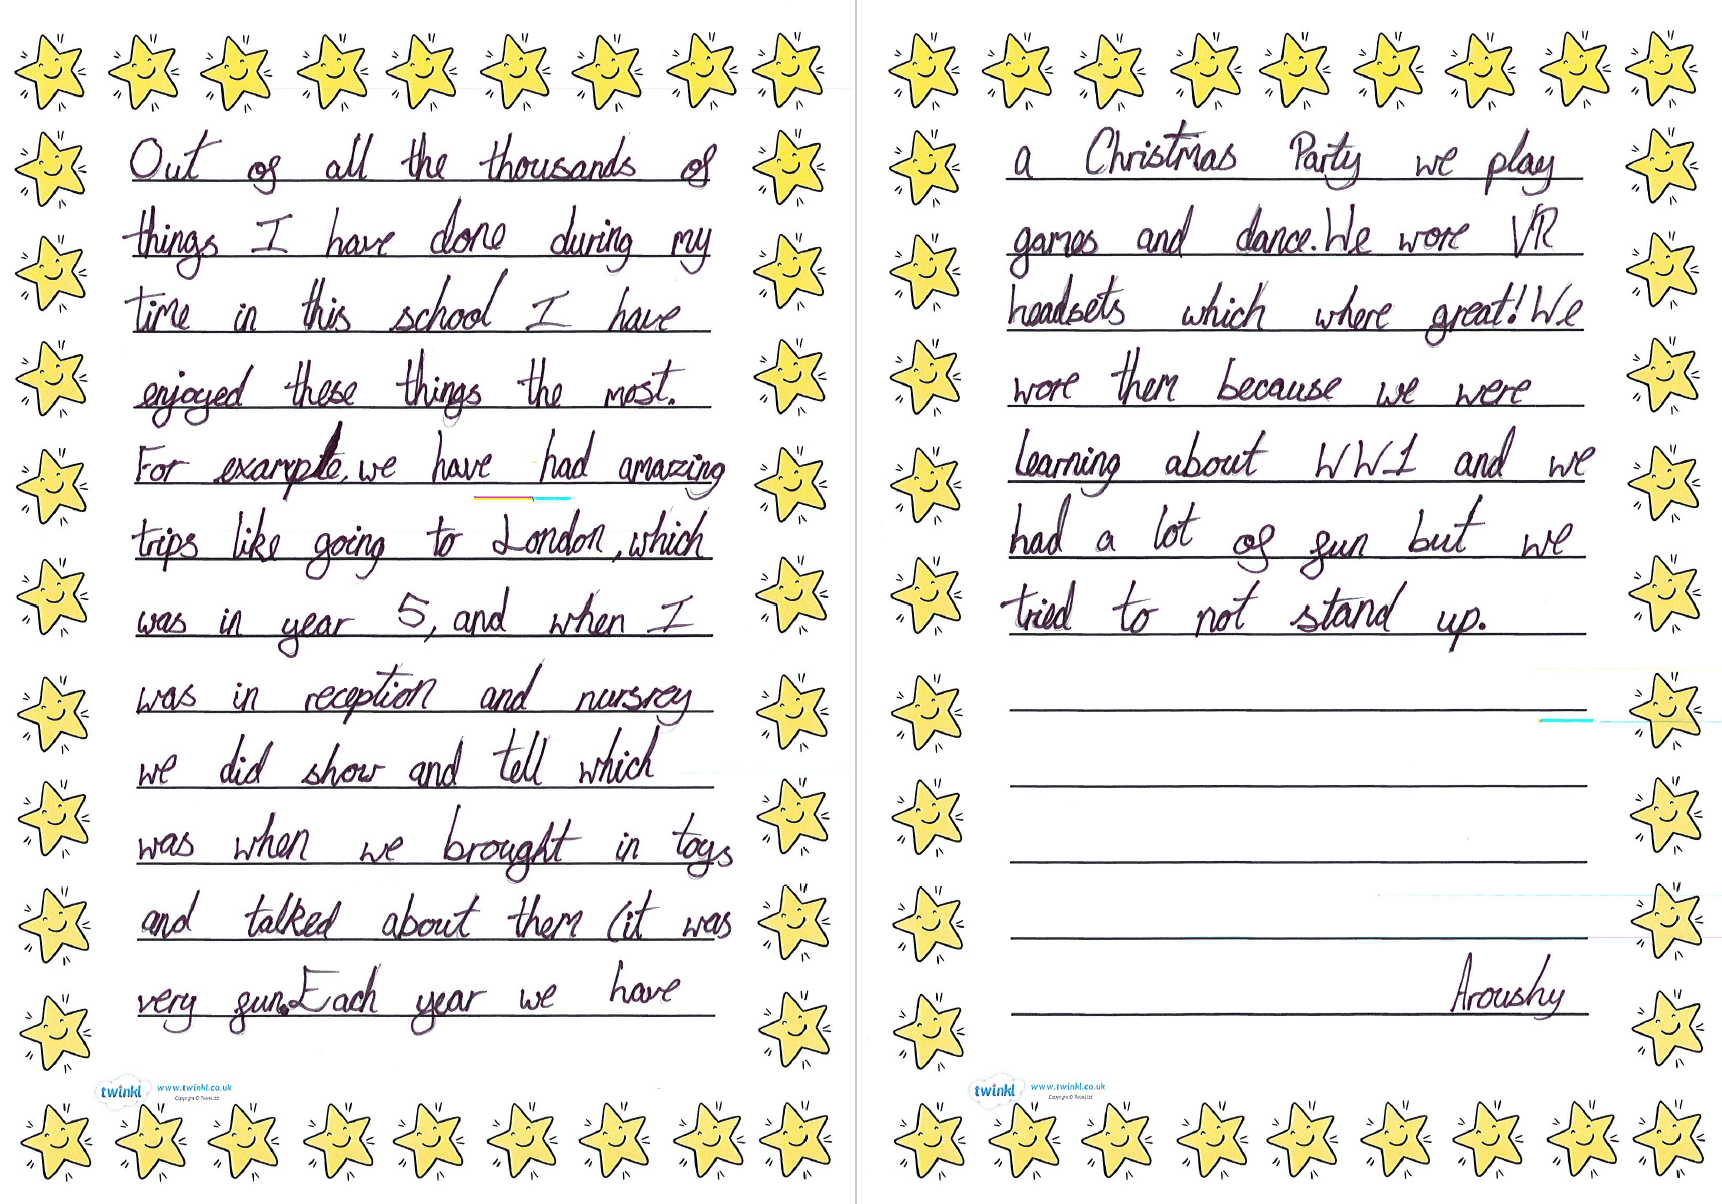 Out of all the thousands of
things I have done during my
time in this school I have
enjoyed these things the most.
For example, we have had amazing
trips like going to London, which
was in year 5, and when I
was in reception and nursrey
we did show and tell which
was when we brought in toys
and talked about them (it was
very fun. Each year we have
twinkl www.twinkl.co.uk
Copyright © Twinkl Ltd
a Christmas Party we play
games and dance. We wore VR
headsets which where great! We
wore them because we were
learning about WW1 and we
had a lot of fun but we
tried to not stand up.
Aroushy
twinkl www.twinkl.co.uk
Copyright © Twinkl Ltd